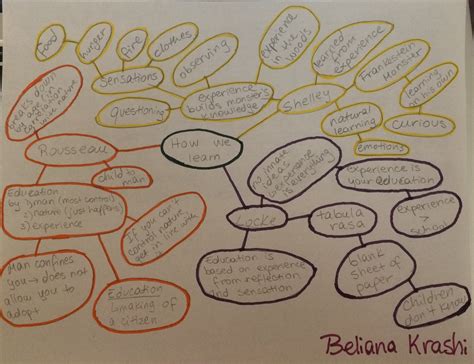 food
hunger
fire
clothes
sensations
observing
questioning
experience
builds monster's
knowledge
experience
in the
woods
learned
from
experience
Frankenstein
Monster
learning
on his
own
Shelley
natural
learning
curious
emotions
How we
learn
breaks down
by age in
correlation
Rousseau
child to
man
Education
by 1) man (most control)
2) nature (just happens)
3) experience
If you can't
control nature,
get in line with
it
Man confines
you → does not
allow you to
adopt
Education
making of
a citizen
no innate
ideas
experience
is everything
Experience is
your education
Locke
tabula
rasa
experience
>
school
Education is
based on experience
from reflection
and sensation
blank
sheet of
paper
Children
don't know
Beliana Krashi